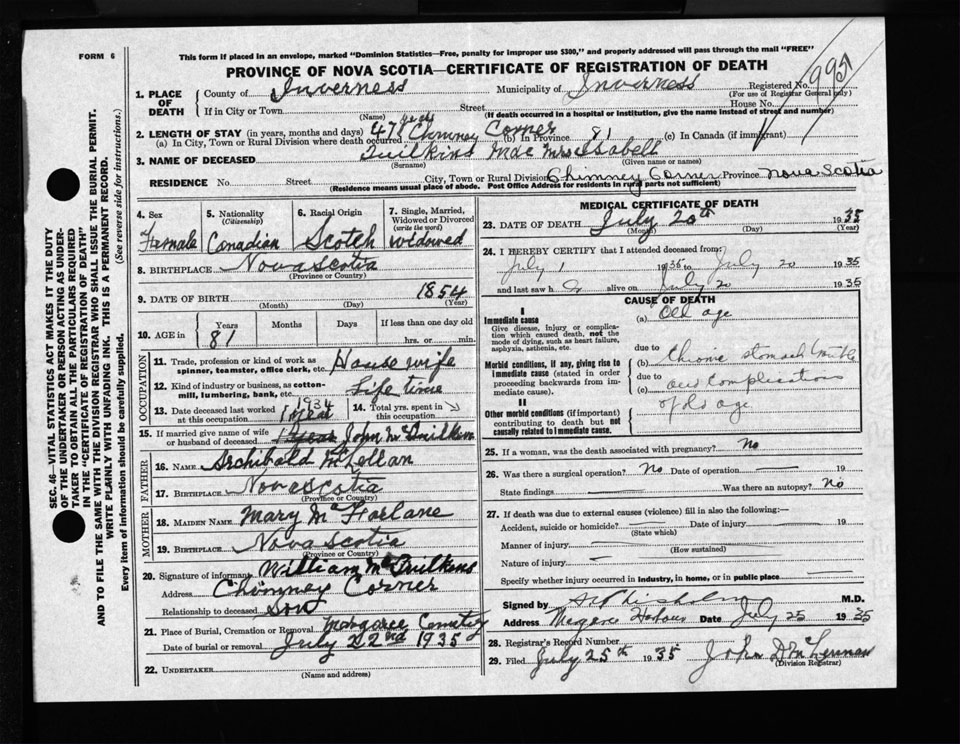 FORM 6
This form if placed in an envelope, marked "Dominion Statistics—Free, penalty for improper use $300," and properly addressed will pass through the mail "FREE"
PROVINCE OF NOVA SCOTIA—CERTIFICATE OF REGISTRATION OF DEATH
1. PLACE OF DEATH
County of Inverness Municipality of Inverness Registered No. 995
(For use of Registrar General only)
If in City or Town Street House No.
(Name) (If death occurred in a hospital or institution, give the name instead of street and number)
2. LENGTH OF STAY (in years, months and days)
(a) In City, Town or Rural Division where death occurred 47 years Chimney Corner (b) In Province 81 (c) In Canada (if immigrant)
3. NAME OF DECEASED Quilkins Mac Mrs Isabell
(Surname) (Given name or names)
RESIDENCE No. Street City, Town or Rural Division Chimney Corner Province Nova Scotia
(Residence means usual place of abode. Post Office Address for residents in rural parts not sufficient)
4. Sex Female
5. Nationality (Citizenship) Canadian
6. Racial Origin Scotch
7. Single, Married, Widowed or Divorced (write the word) widowed
8. BIRTHPLACE Nova Scotia
(Province or Country)
9. DATE OF BIRTH 1854
(Month) (Day) (Year)
10. AGE in Years Months Days If less than one day old
81 hrs. or min.
OCCUPATION
11. Trade, profession or kind of work as spinner, teamster, office clerk, etc. House wife
12. Kind of industry or business, as cotton-mill, lumbering, bank, etc. Life time
13. Date deceased last worked at this occupation 1934
14. Total yrs. spent in this occupation
15. If married give name of wife or husband of deceased John McQuilken
FATHER
16. NAME Archibald McLellan
17. BIRTHPLACE Nova Scotia
(Province or Country)
MOTHER
18. MAIDEN NAME Mary McFarlane
19. BIRTHPLACE Nova Scotia
(Province or Country)
20. Signature of informant William McQuilkens
Address Chimney Corner
Relationship to deceased Son
21. Place of Burial, Cremation or Removal Margaree Cemetry
Date of burial or removal July 22nd 1935
22. UNDERTAKER
(Name and address)
MEDICAL CERTIFICATE OF DEATH
23. DATE OF DEATH July 20th 1935
(Month) (Day) (Year)
24. I HEREBY CERTIFY that I attended deceased from:
July 1 1935 to July 20 1935
and last saw h alive on July 20 1935
CAUSE OF DEATH
I
Immediate cause
Give disease, injury or complication which caused death, not the mode of dying, such as heart failure, asphyxia, asthenia, etc.
(a) Old age
due to
Morbid conditions, if any, giving rise to immediate cause (stated in order proceeding backwards from immediate cause).
(b) Chronic stomach trouble
due to
(c) and complications
of old age
II
Other morbid conditions (if important) contributing to death but not causally related to immediate cause.
25. If a woman, was the death associated with pregnancy? No
26. Was there a surgical operation? No Date of operation 19
State findings Was there an autopsy? No
27. If death was due to external causes (violence) fill in also the following:—
Accident, suicide or homicide? Date of injury 19
(State which)
Manner of injury
(How sustained)
Nature of injury
Specify whether injury occurred in industry, in home, or in public place
Signed by Chisholm M.D.
Address Margaree Harbour Date July 25 1935
28. Registrar's Record Number
29. Filed July 25th 1935 John D McLennan
(Division Registrar)
SEC. 46—VITAL STATISTICS ACT MAKES IT THE DUTY OF THE UNDERTAKER OR PERSON ACTING AS UNDERTAKER TO OBTAIN ALL THE PARTICULARS REQUIRED IN THE "CERTIFICATE OF REGISTRATION OF DEATH" AND TO FILE THE SAME WITH THE DIVISION REGISTRAR WHO SHALL ISSUE THE BURIAL PERMIT.
WRITE PLAINLY WITH UNFADING INK. THIS IS A PERMANENT RECORD.
Every item of information should be carefully supplied. (See reverse side for instructions.)